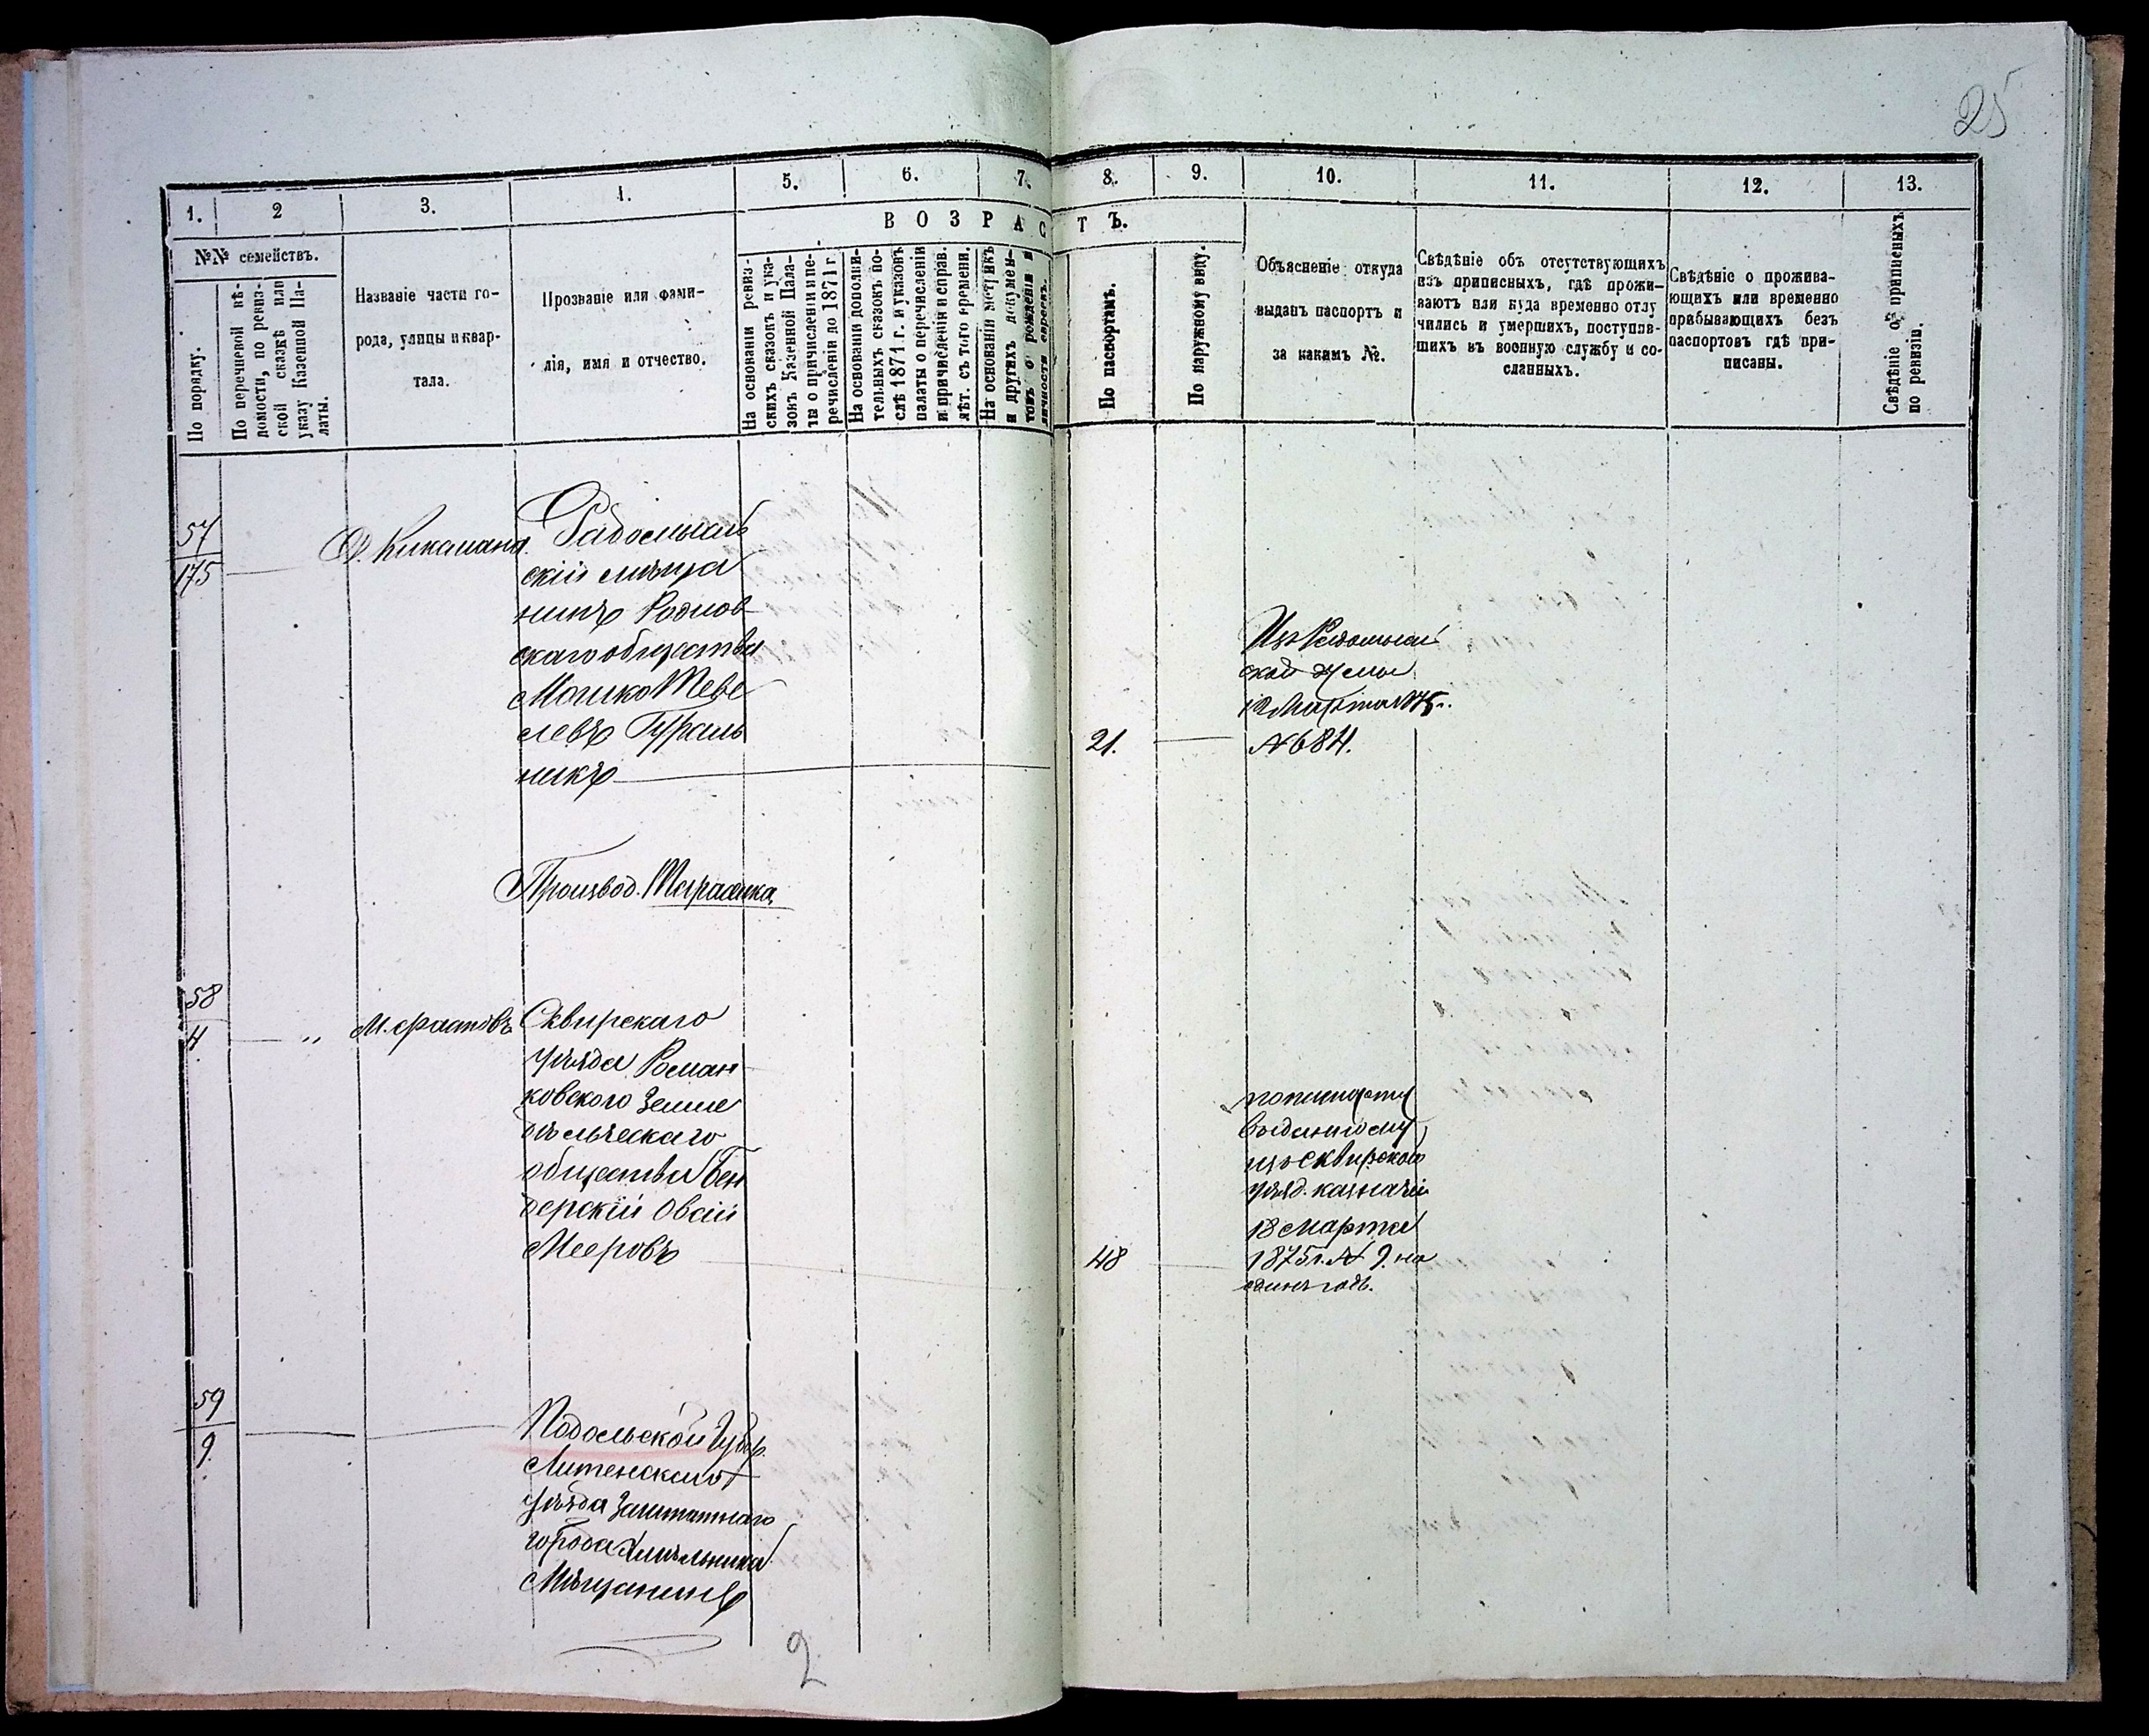 25
1. 2 3. 4. 5. 6. 7. 8. 9. 10. 11. 12. 13.
ВОЗРАСТЪ.
№№ семействъ.
По порядку.
По перечневой вѣ-
домости, по ревиз-
ской сказкѣ или
указу Казенной Па-
латы.
Названіе части го-
рода, улицы и квар-
тала.
Прозваніе или фами-
лія, имя и отчество.
На основаніи ревиз-
скихъ сказокъ и ука-
зокъ Казенной Пала-
ты о причисленіи и пе-
речисленіи до 1871 г.
На основаніи дополни-
тельныхъ сказокъ по-
слѣ 1871 г. и указовъ
палаты о перечисленіи
и причисленіи и справ.
лѣт. съ того времени.
На основаніи метрикъ
и другихъ докумен-
товъ о рожденіи и
личности евреевъ.
По паспортамъ.
По наружному виду.
Объясненіе откуда
выданъ паспортъ и
за какимъ №.
Свѣдѣніе объ отсутствующихъ
изъ приписныхъ, гдѣ прожи-
ваютъ или куда временно отлу
чились и умершихъ, поступив-
шихъ въ военную службу и со-
сланныхъ.
Свѣдѣніе о прожива-
ющихъ или временно
прибывающихъ безъ
паспортовъ гдѣ при-
писаны.
Свѣдѣніе о приписныхъ
по ревизіи.
57
175
Радомысль
скій мѣща
нинъ
скаго общества
Мошко Теве
левъ Гураль
никъ
21.
Изъ Радомысль
ской Думы
12 Марта 1875.
№ 684.
Произвед.
58
4
"
М. Фастовъ
Сквирскаго
уѣзда Роман
ковского Земле
дѣльческаго
общества Бен
дерскій Овсій
Мееровъ
48
выданному
изъ Сквирского
уѣзд. казначей
18 Марта
1875 г. № 9. на
одинъ годъ.
59
9.
Подольской Губер.
Литенскаго
уѣзда Заштатнаго
города Хмѣльника
Мѣщанинъ
2